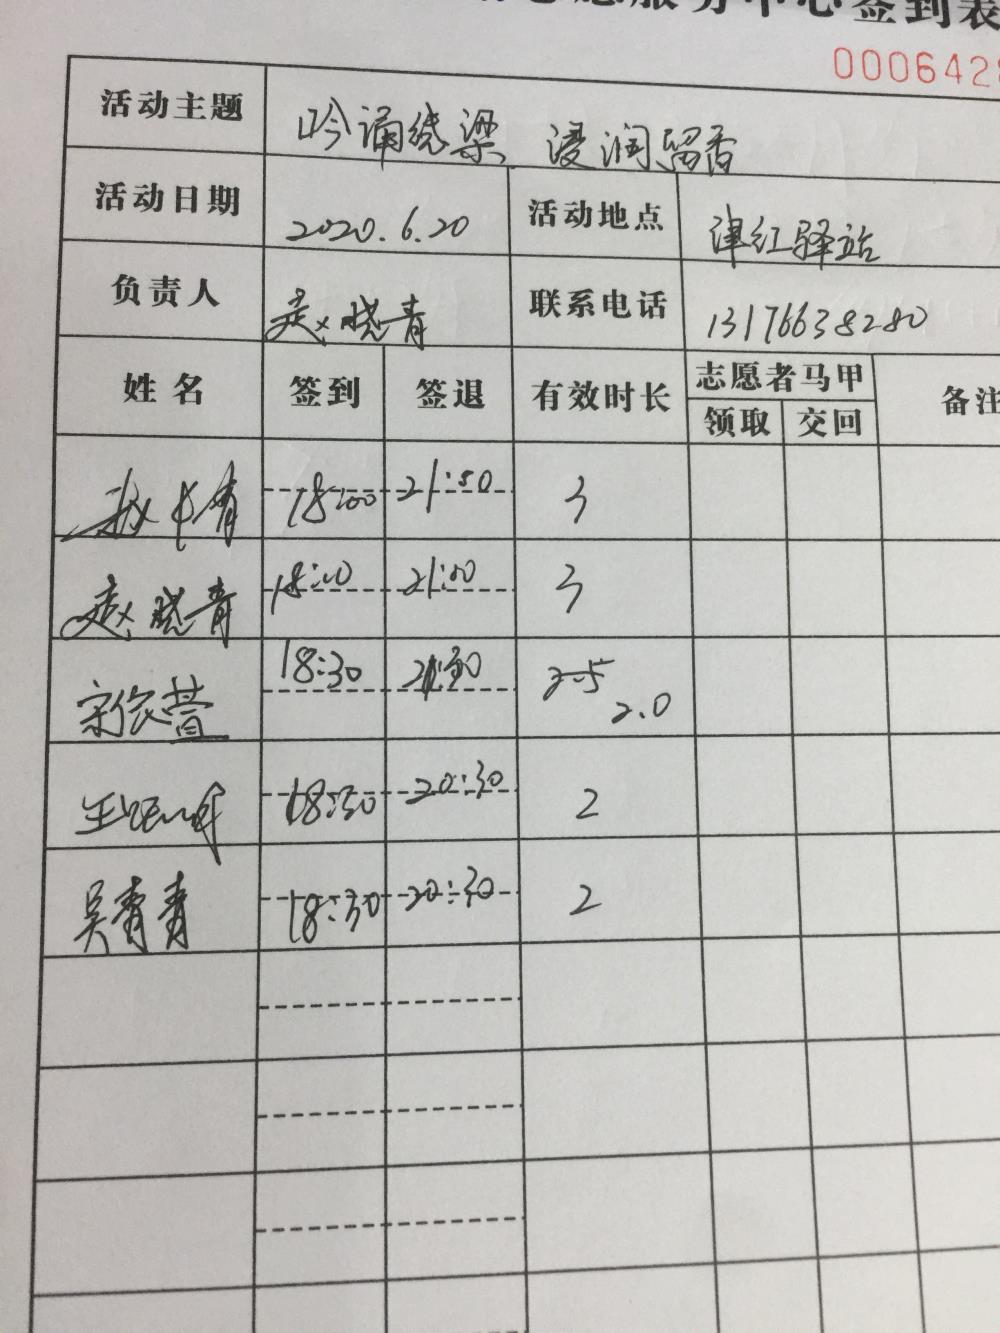 服务中心签到表
000642
活动主题 吟诵绕梁 浸润留香
活动日期 2020.6.20 活动地点 津红驿站
负责人 赵晓青 联系电话 13176638280
姓名 签到 签退 有效时长 志愿者马甲 备注
领取 交回
18:00 21:00 3
赵晓青 18:00 21:00 3
宋依萱 18:30 2.0
18:30 20:30 2
吴青青 18:30 20:30 2